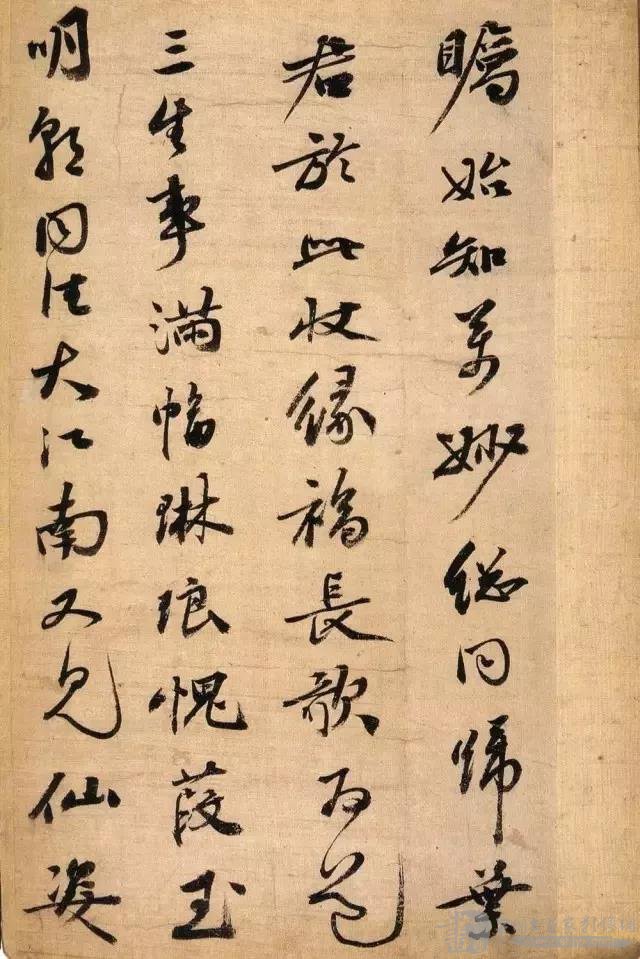 矚始知萬妙總同歸葉
君於此收緣福長歌為道
三生事滿幅琳琅愧葭玉
明朝同往大江南又見仙姿